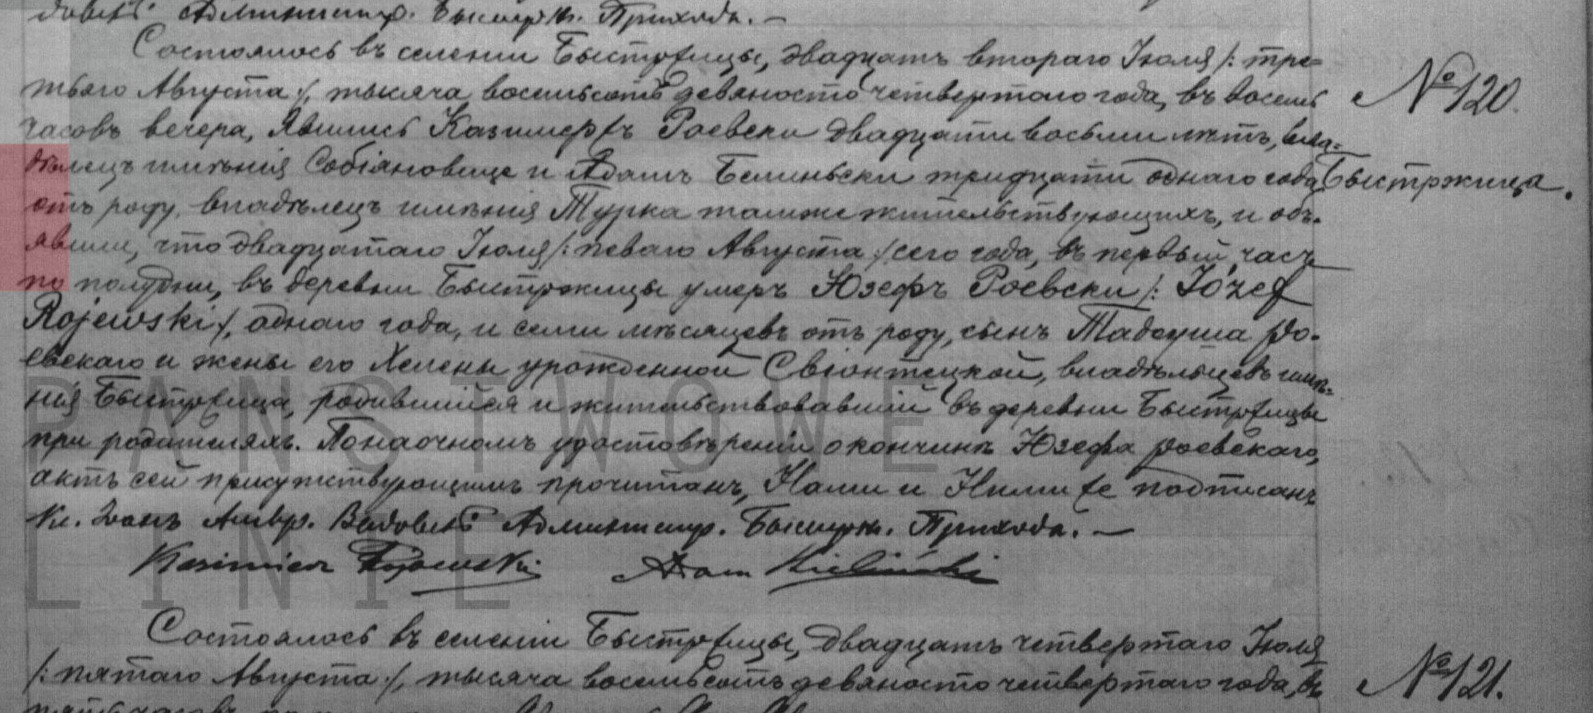 Администр. Быстрж. Прихода. —
Состоялось въ селеніи Быстржицы, двадцать втораго Іюля /: тре=
тьяго Августа :/, тысяча восемьсотъ девяносто четвертаго года, въ восемь
№ 120.
часовъ вечера, явились Казимержъ Роевски двадцати восьми лѣтъ, вла=
дѣлецъ имѣнія Собіановице и Адамъ тридцати одного года
Быстржица.
отъ роду, владѣлецъ имѣнія Турка тамже жительствующихъ, и объ-
явили, что двадцатаго Іюля /: перваго Августа :/ сего года, въ первый часъ
по полудни, въ деревни Быстржицы умеръ Юзефъ Роевски /: Józef
Rojewski :/, одного года, и семи мѣсяцевъ отъ роду, сынъ Тадеуша Ро-
евскаго и жены его Хелены урожденной Свіонтецкой, владѣльцевъ имѣ=
нія Быстржица, родившійся и жительствовавшій въ деревни Быстржицы
при родителяхъ. По наочномъ удостовѣреніи о кончинѣ Юзефа Роевскаго,
актъ сей присутствующимъ прочитанъ, Нами и Ними же подписанъ
Кс. Администр. Быстрж. Прихода. —
Kazimierz Rojewski Adam
PAŃSTWOWE
LINIE
Состоялось въ селеніи Быстржицы, двадцать четвертаго Іюля
/: пятаго Августа :/, тысяча восемьсотъ девяносто четвертаго года, въ
№ 121.